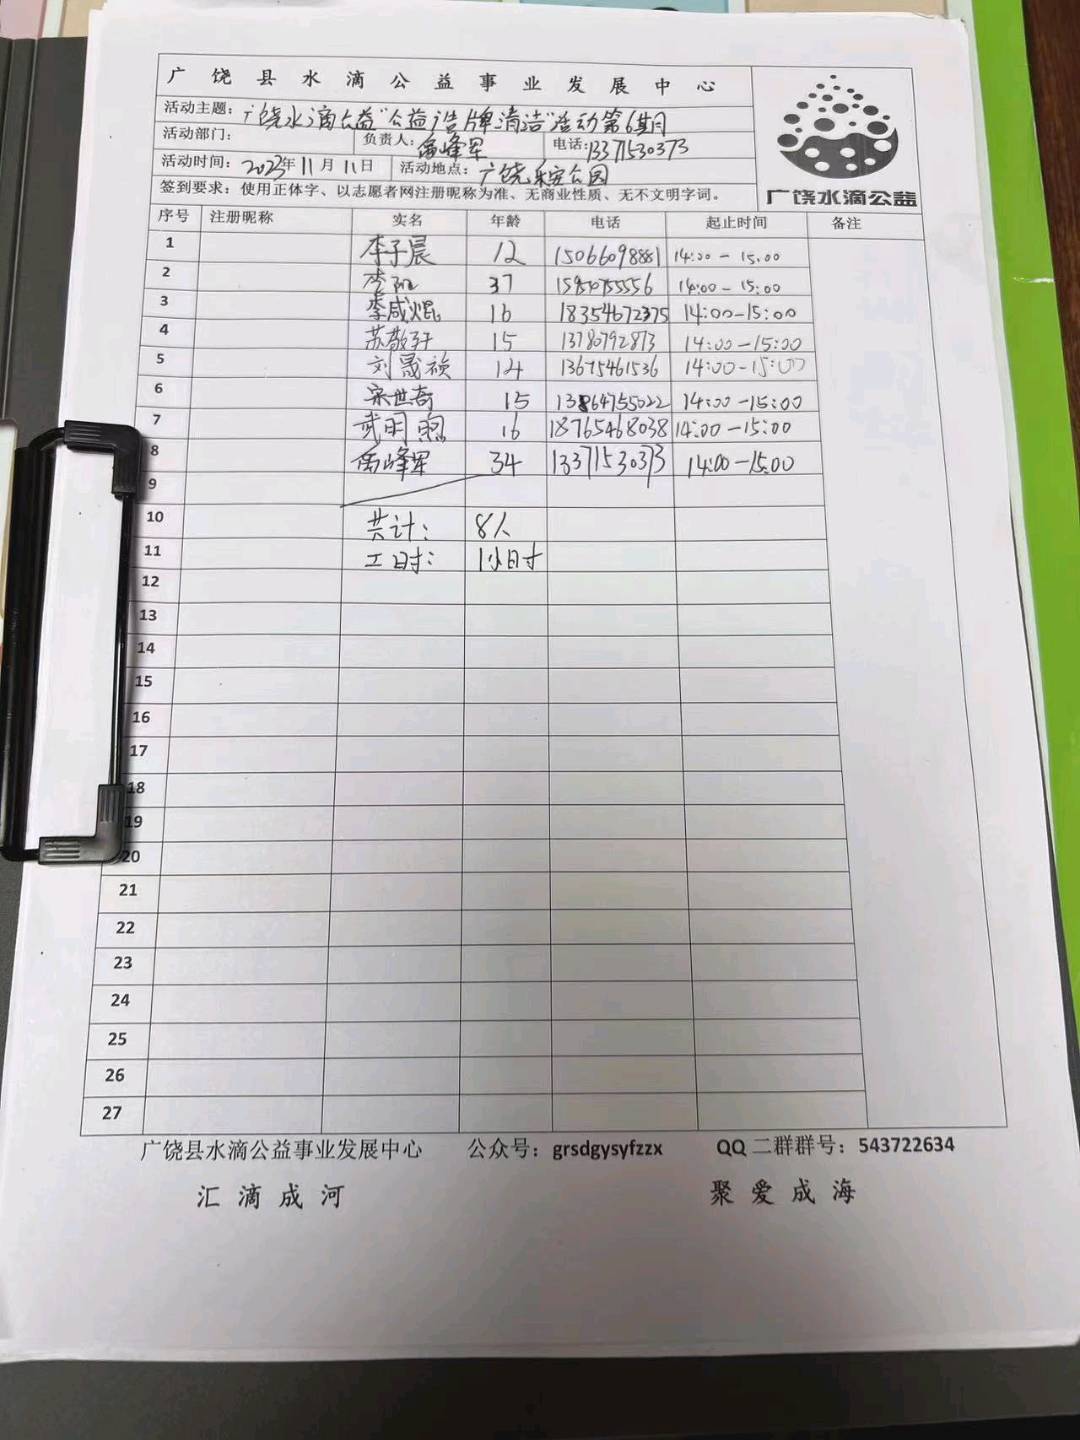 广饶县水滴公益事业发展中心
活动主题：广饶水滴公益"公益广告牌清洁"活动第6期
活动部门： 负责人：禹峰军 电话：13371530373
活动时间：2023年11月11日 活动地点：广饶乐安公园
签到要求：使用正体字、以志愿者网注册昵称为准、无商业性质、无不文明字词。
广饶水滴公益
序号 注册昵称 实名 年龄 电话 起止时间 备注
1 李子晨 12 15066098881 14:00-15:00
2 李 37 14:00-15:00
3 李咸焜 16 18354672375 14:00-15:00
4 苏敬轩 15 13780792873 14:00-15:00
5 刘晟祯 14 13675461536 14:00-15:00
6 宋世奇 15 13864755022 14:00-15:00
7 武明煦 16 18765468038 14:00-15:00
8 禹峰军 34 13371530373 14:00-15:00
9
10 共计： 8人
11 工时： 1小时
12
13
14
15
16
17
18
19
20
21
22
23
24
25
26
27
广饶县水滴公益事业发展中心 公众号：grsdgysyfzzx QQ二群群号：543722634
汇滴成河 聚爱成海